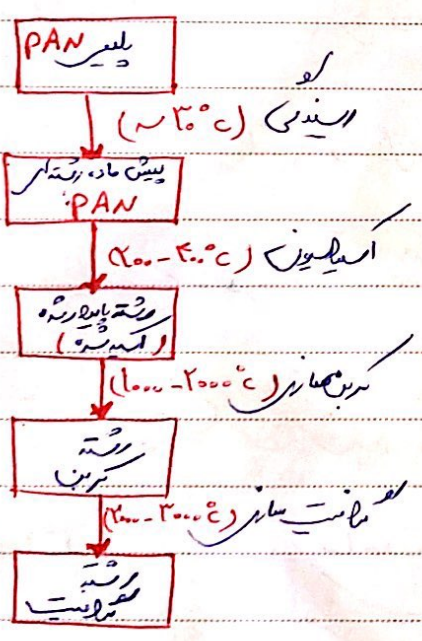 پلیمر PAN
ریسندگی (~ ۳۰°c)
پیش ماده رشته‌ای
PAN
اکسیداسیون (۲۰۰-۴۰۰°c)
رشته پایدار شده
(اکسید شده)
کربن سازی (۱۰۰۰-۲۰۰۰°c)
رشته
کربن
گرافیت سازی (۲۰۰۰-۳۰۰۰°c)
رشته
گرافیت